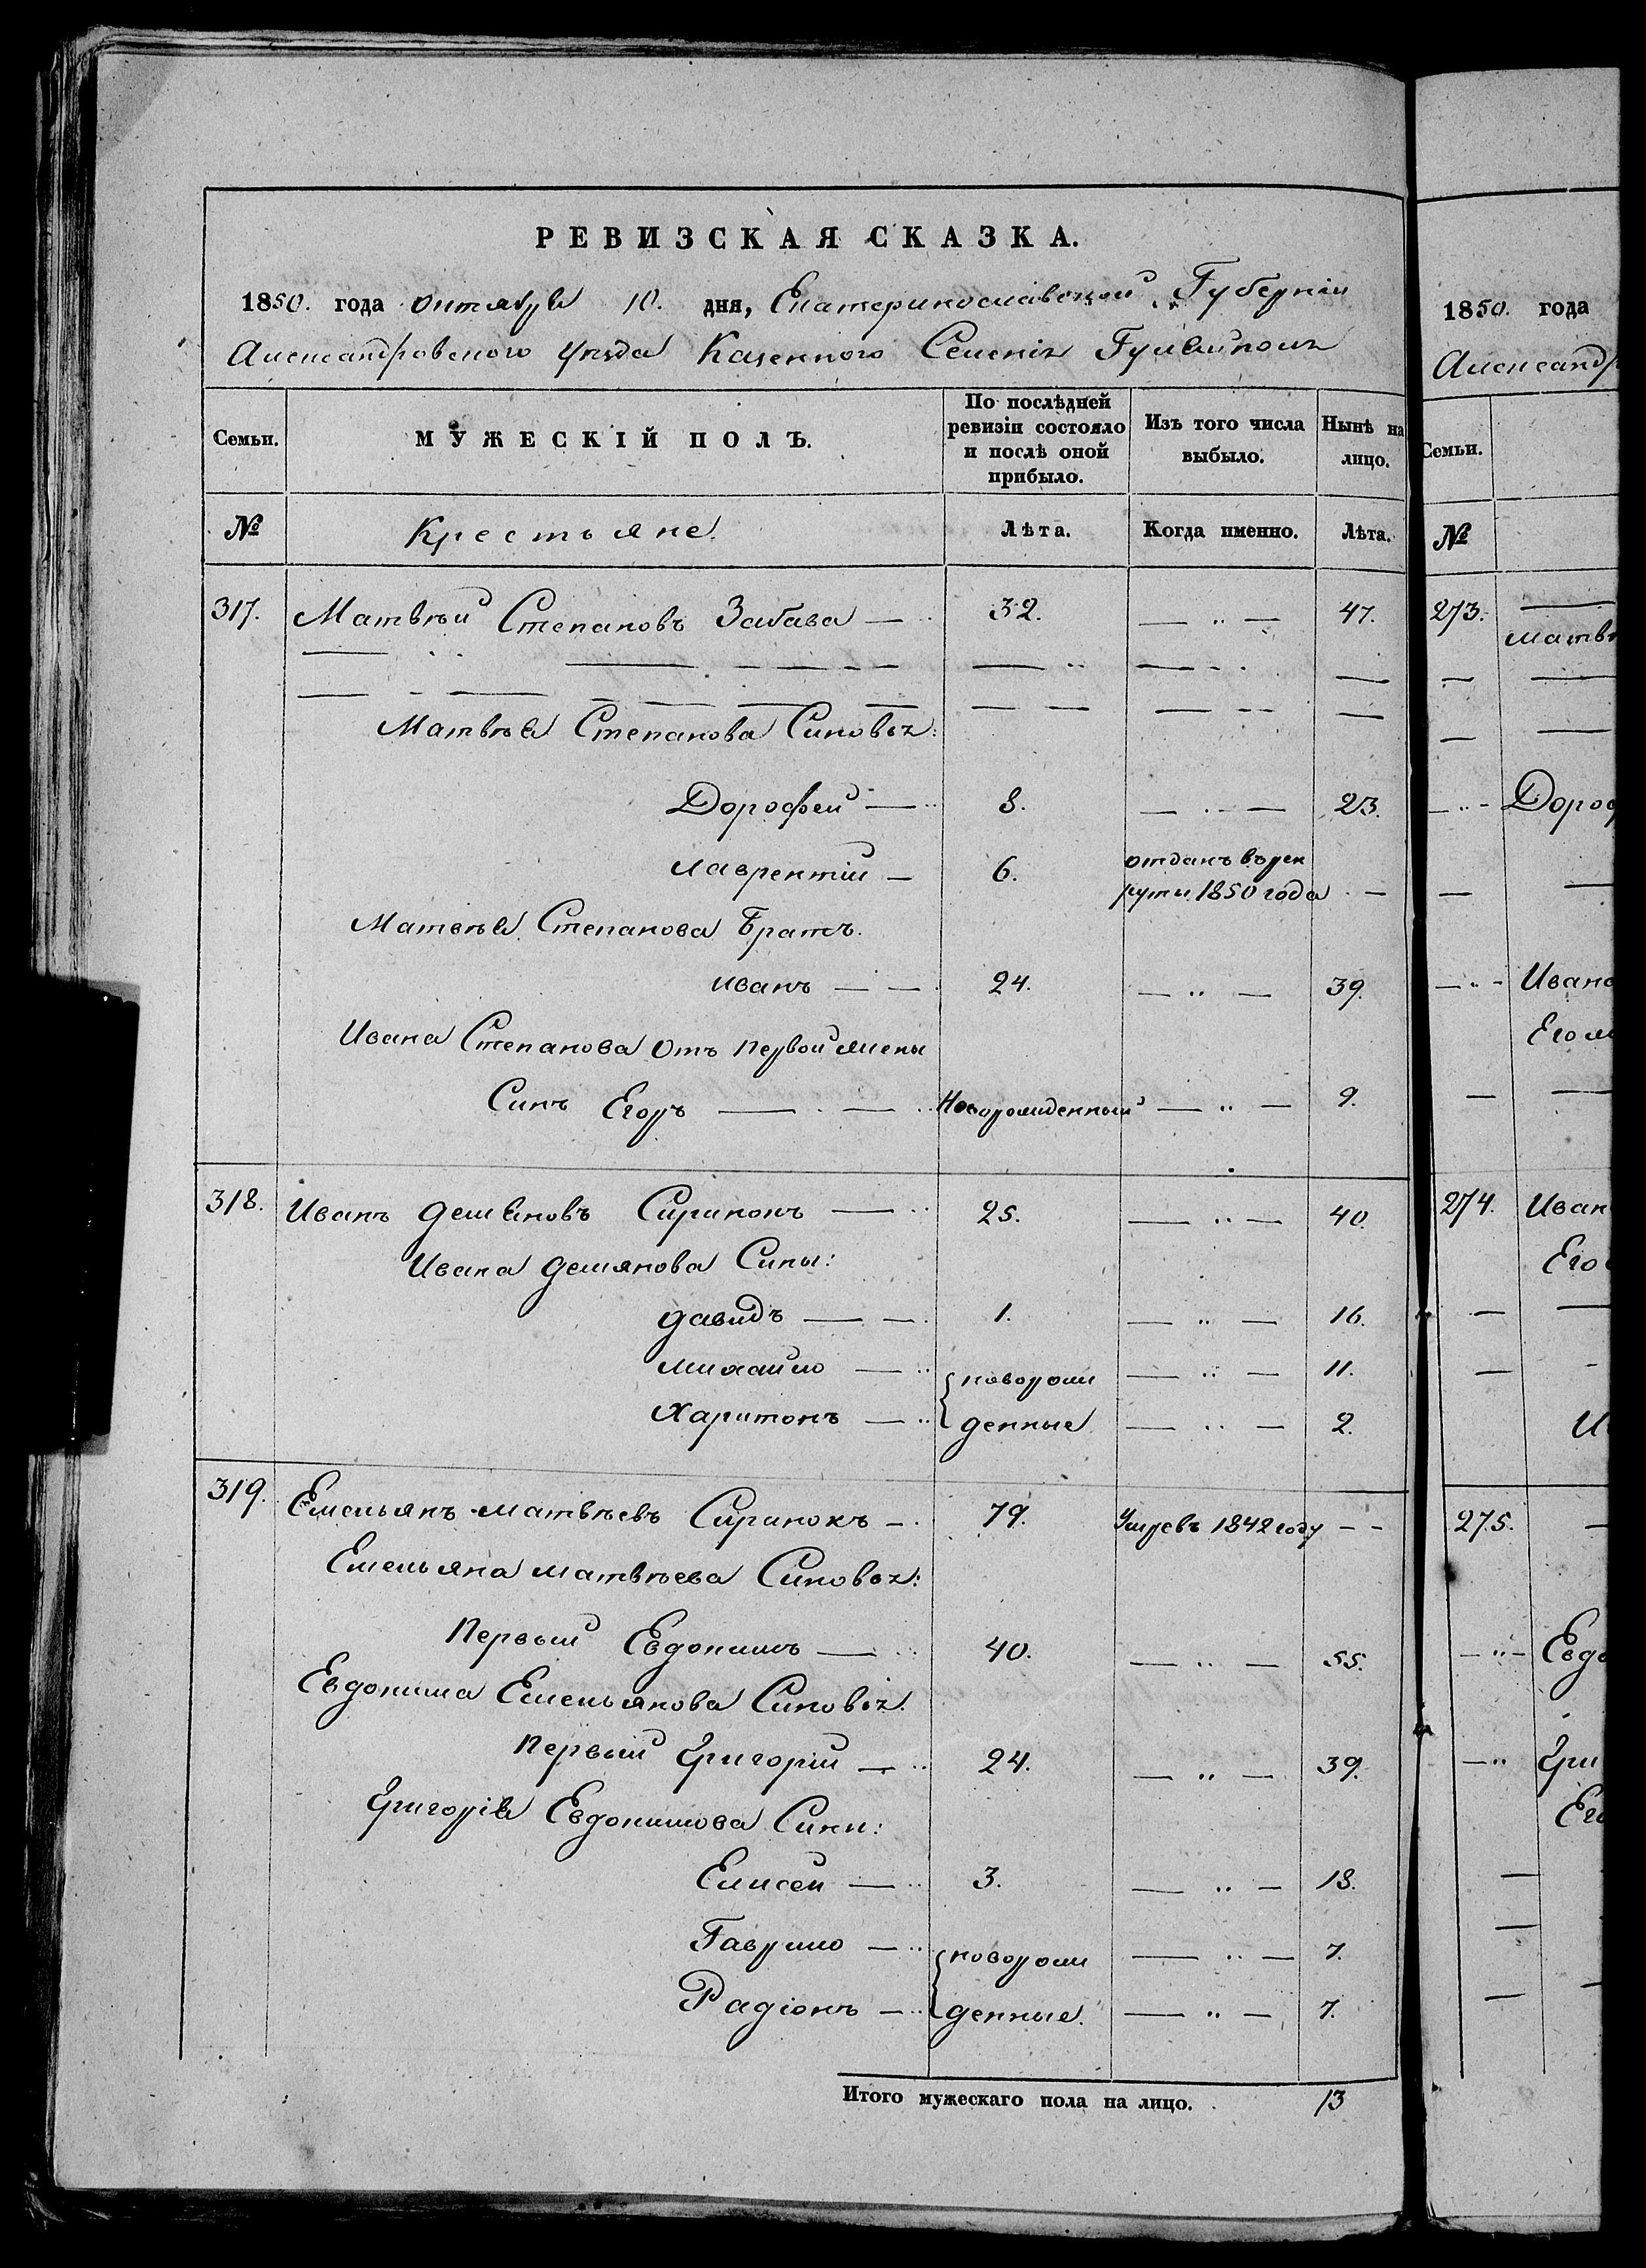 РЕВИЗСКАЯ СКАЗКА.
1850. года октября 10. дня, Екатеринославской Губернiи
Александровского уѣзда Казенного Селенiя Гуляйполя
Семьи. МУЖЕСКІЙ ПОЛЪ. По послѣдней ревизіи состояло и послѣ оной прибыло. Изъ того числа выбыло. Нынѣ на лицо.
№ Крестьяне. Лѣта. Когда именно. Лѣта.
317. Матвѣй Степановъ Забава — 32. — „ — 47.
Матвѣя Степанова Синовья:
Дорофей — 8. — „ — 23.
Лаврентiй — 6. отданъ върек
руты 1850 года —
Матвѣя Степанова Братъ.
Иванъ — — 24. — „ — 39.
Ивана Степанова отъ первой жены
Синъ Егоръ — — Новорожденный — „ — 9.
318. Иванъ Демяновъ Сиринокъ — 25. — „ — 40.
Ивана Демянова Сины:
Давидъ — — 1. — „ — 16.
Михайло — новорож — „ — 11.
Харитонъ — денные — „ — 2.
319. Емельянъ Матвѣевъ Сиринокъ — 79. Умревъ 1842 году — —
Емельяна Матвѣева Синовья:
Первый Евдокимъ — 40. — „ — 55.
Евдокима Емельянова Синовья.
Первый Григорiй — 24. — „ — 39.
Григорiя Евдокимова Сини:
Елисей — 3. — „ — 18.
Гаврило — новорож — „ — 7.
Радiонъ — денные. — „ — 7.
Итого мужескаго пола на лицо. 13
1850. года
Александр
Семьи.
№
273. —
Матвѣ
— „ — Дороф
— „ — Ивано
Его
274. Иван
Его
275. —
— „ — Евдо
— „ Гри
Его